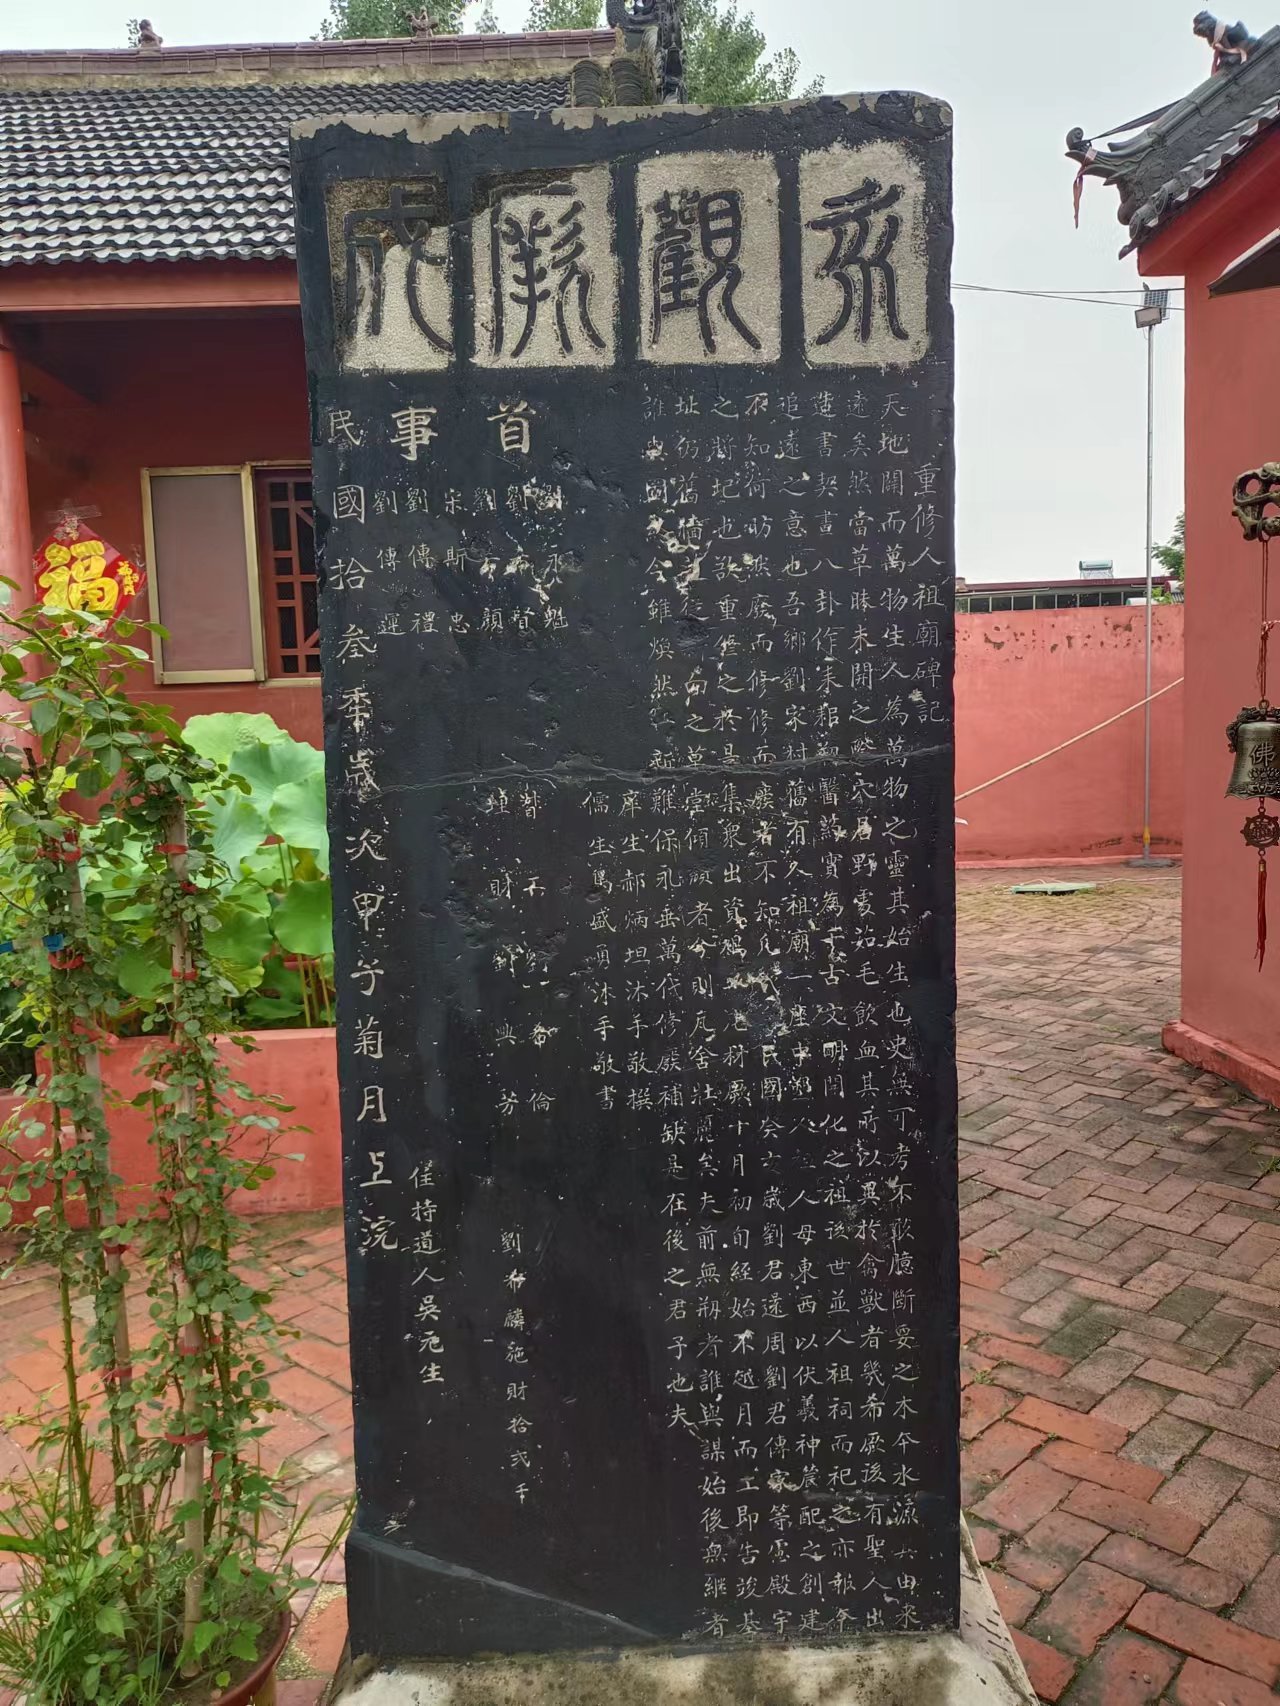 永觀厥成
重修人祖廟碑記
天地闢而萬物生人為萬物之靈其始生也史無可考不敢臆斷要之木本水源由來
遠矣然當草昧未開之際穴居野處茹毛飲血其所以異於禽獸者幾希厥後有聖人出
造書契畫八卦作耒耜製醫藥實為千古文明開化之祖後世並人祖祠而祀之亦報本
追遠之意也吾鄉劉家村舊有人祖廟一座中塑人祖人母東西以伏羲神農配之創建
不知何昉然廢而修修而廢者不知凡幾民國癸亥歲劉君遂周劉君傳家等慮殿宇
之將圮也欲重修之於是集眾出資鳩工庀材厥十月初旬經始不越月而工即告竣基
址仍舊牆向之草常傾頹者今則瓦舍壯麗矣夫前無剏者誰與謀始後無繼者
誰與圖終今雖煥然一新難保永垂萬代修廢補缺是在後之君子也夫
庠生郝炳坦沐手敬撰
儒生馬盛勇沐手敬書
首事
劉永魁
劉希督
劉顏
宋斯忠
劉傳禮
劉傳運
督工劉希倫
掉財劉興芳
劉希麟施財拾弍千
住持道人吳元生
民國拾叁季歲次甲子菊月上浣
福
佛